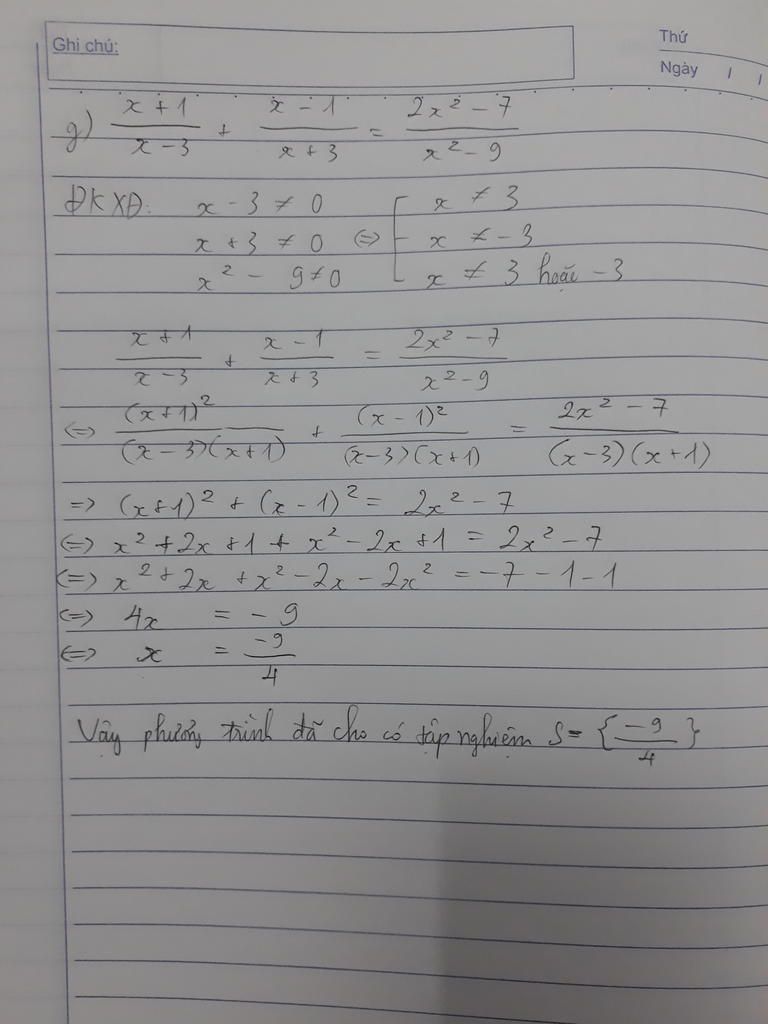 Ghi chú:
Thứ
Ngày / /
g) \frac{x+1}{x-3} + \frac{x-1}{x+3} = \frac{2x²-7}{x²-9}
ĐKXĐ: x - 3 ≠ 0 x ≠ 3
x + 3 ≠ 0 <=> x ≠ -3
x² - 9 ≠ 0 x ≠ 3 hoặc -3
\frac{x+1}{x-3} + \frac{x-1}{x+3} = \frac{2x²-7}{x²-9}
<=> \frac{(x+1)²}{(x-3)(x+1)} + \frac{(x-1)²}{(x-3)(x+1)} = \frac{2x²-7}{(x-3)(x+1)}
=> (x+1)² + (x-1)² = 2x² - 7
<=> x² + 2x + 1 + x² - 2x + 1 = 2x² - 7
<=> x² + 2x + x² - 2x - 2x² = -7 - 1 - 1
<=> 4x = -9
<=> x = \frac{-9}{4}
Vậy phương trình đã cho có tập nghiệm S = {\frac{-9}{4}}